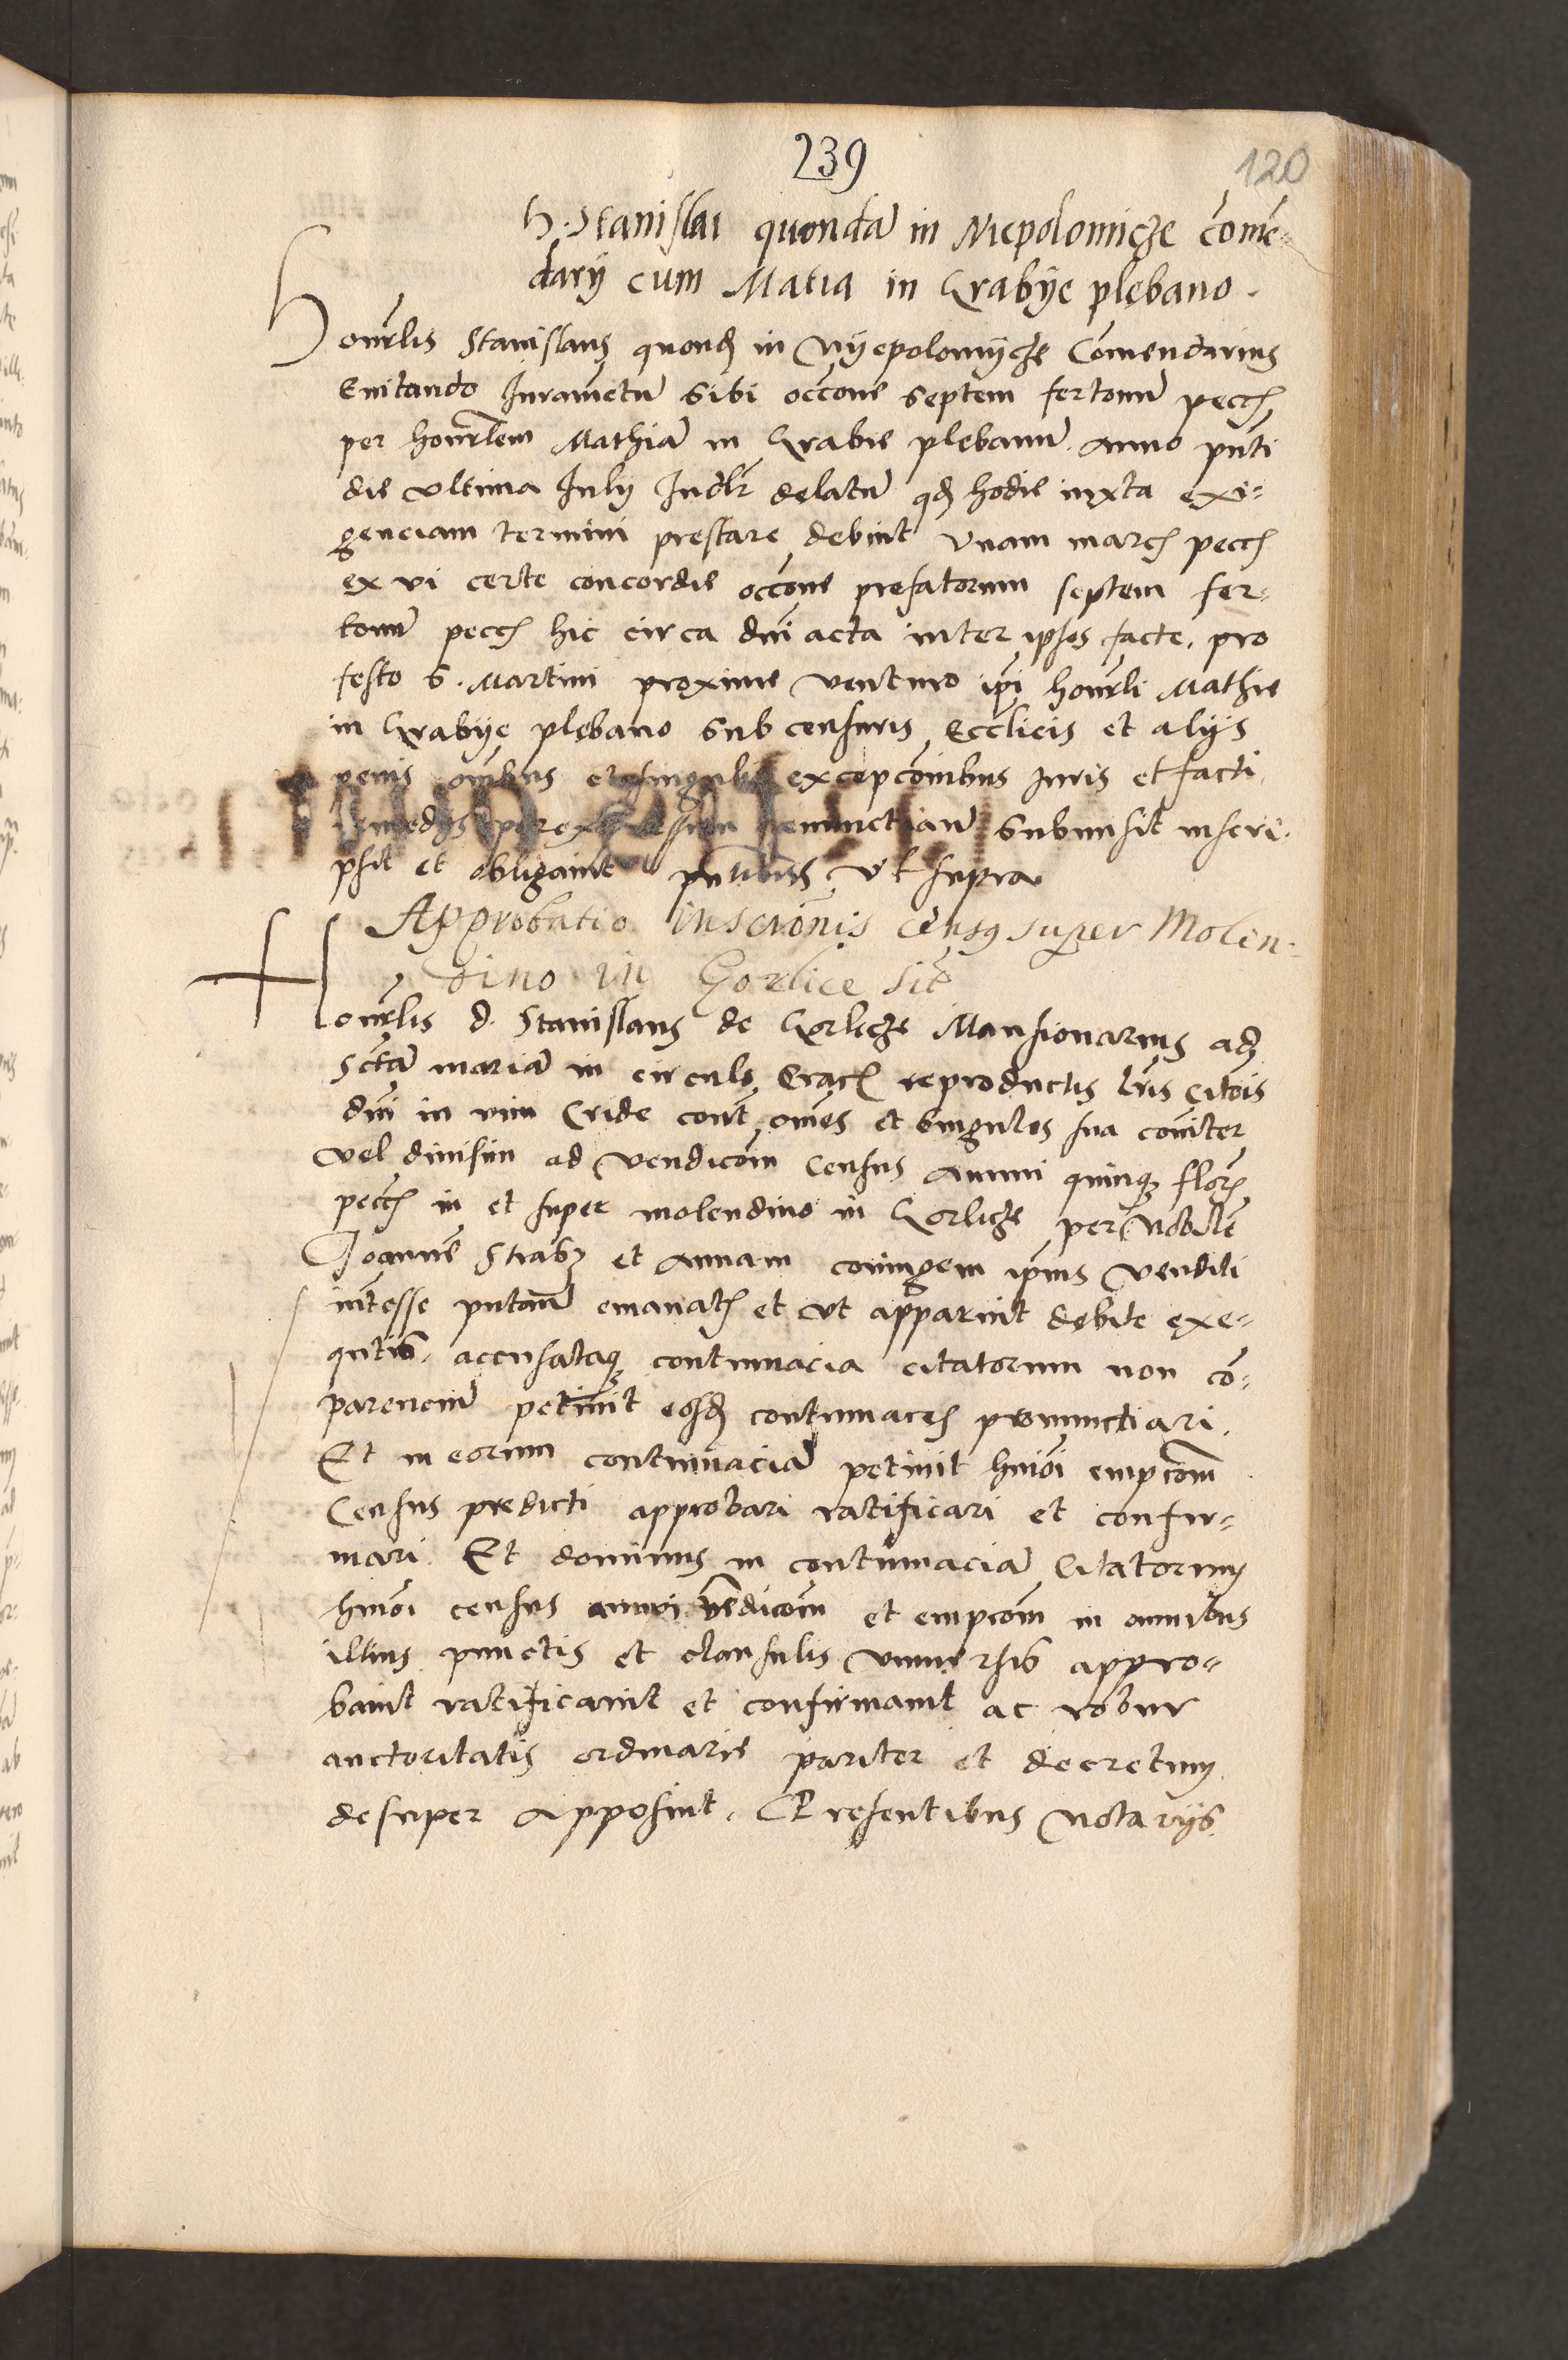 239
120
H. Stanislai quondā in Niepolomicze Comē-
darij cum Matia in Grabije plebano.
Honorlis Stanislaus quond in Nyepolomijcze Comendarius
Evitando Iuramētū sibi occōne septem fertonū pecc
per honorlem Mathiā in Grabie plebanū anno pnti
die ultima Iulij Iudlr delatū qd hodie iuxta exi-
genciam termini prestare debuit Unam marc pecc
ex vi certe concordie occōne prefatorum septem fer-
tonū pecc hic circa dni acta inter ipsos facte. pro
festo S. Martini proxime venturo ipi honorli Mathie
in Grabije plebano sub censuris Ecclicis et alijs
penis omībus et singulis excepcōnibus Iuris et facti
remedijs per expressum renunctiavit submisit inscri-
psit et obligavit pntibus ut supra
Approbatio inscrōnis censs super Molen-
dino in Gorlice sit
Honorlis d. Stanislaus de Gorlicze Mansionarius ad
Sctā mariā in circulo Crac reproductis lris citōis
dni in vim Cride cont omēs et singulos sua cōniter
vel divisim ad vendicōm Census annui quinq florē
pecc in et super molendino in Gorlicze per Nobilē
Joannē Strabz et annam coniugem ipius venditi
intesse putan emanat et ut apparuit debite exe-
qutis. accusataq contumacia citatorum non cō-
parenciū petiuit eosd contumaces pronunctiari.
Et in eorum contumaciā petiuit hmōi empcōm
Census predicti approbari ratificari et confir-
mari. Et dominus in contumaciā Citatorum
hmōi census annui vēdicōm et empcōm in omnibus
illius punctis et clausulis universis appro-
bavit ratificavit et confirmavit ac robur
auctoritatis ordinarie pariter et decretum
desuper apposuit. Presentibus Notarijs